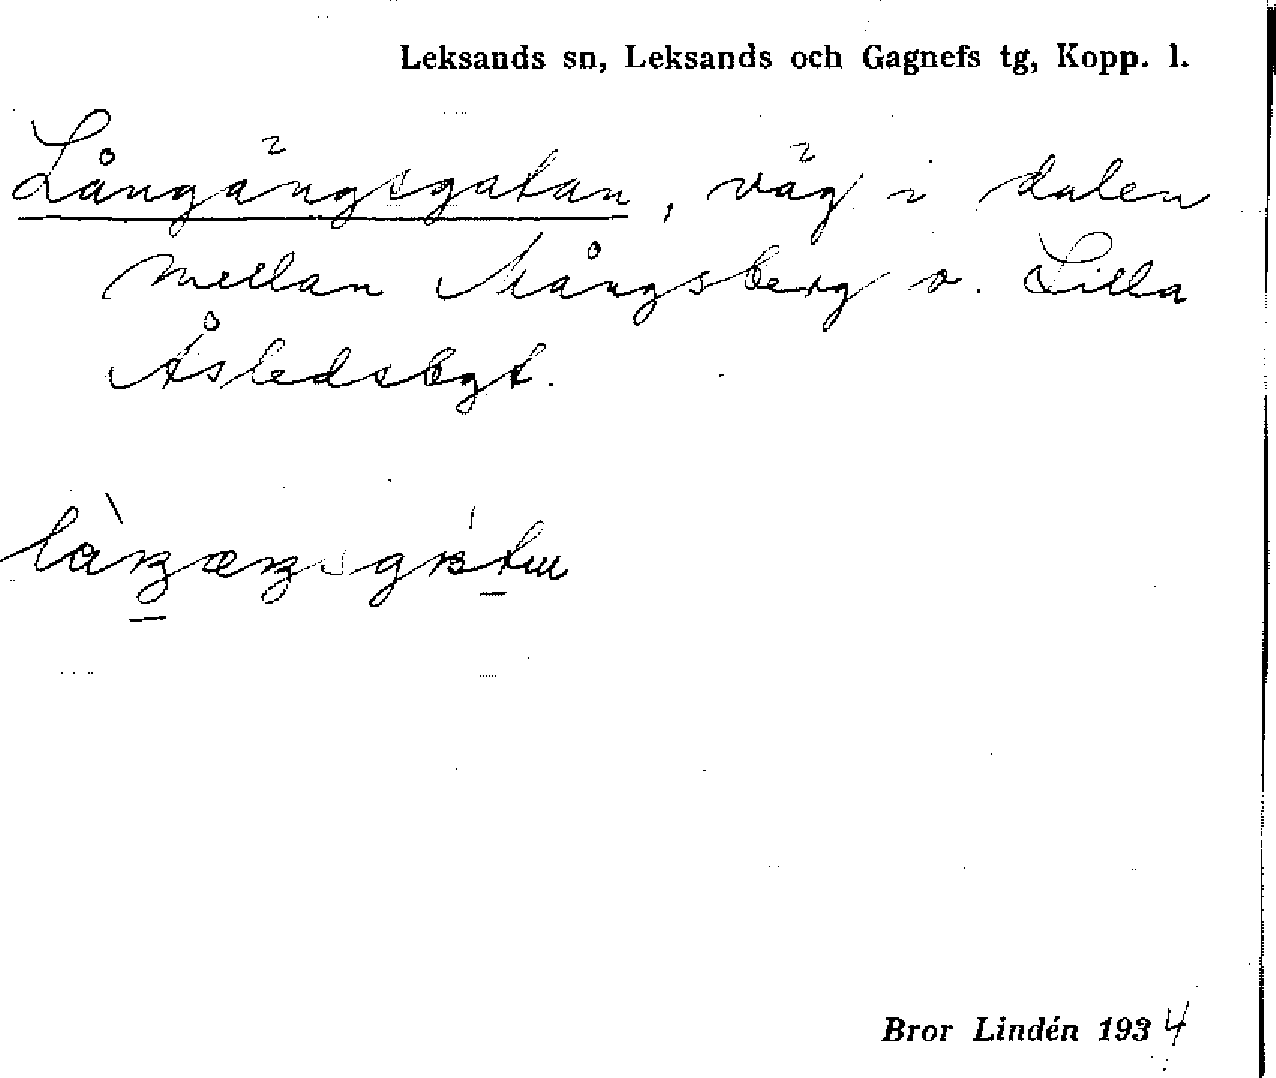 Leksands sn, Leksands och Gagnefs tg, Kopp. l.
Långängsgatan, väg i dalen
mellan Mångsberg o. Lilla
Åsledsbgt.
Bror Lindén 1934